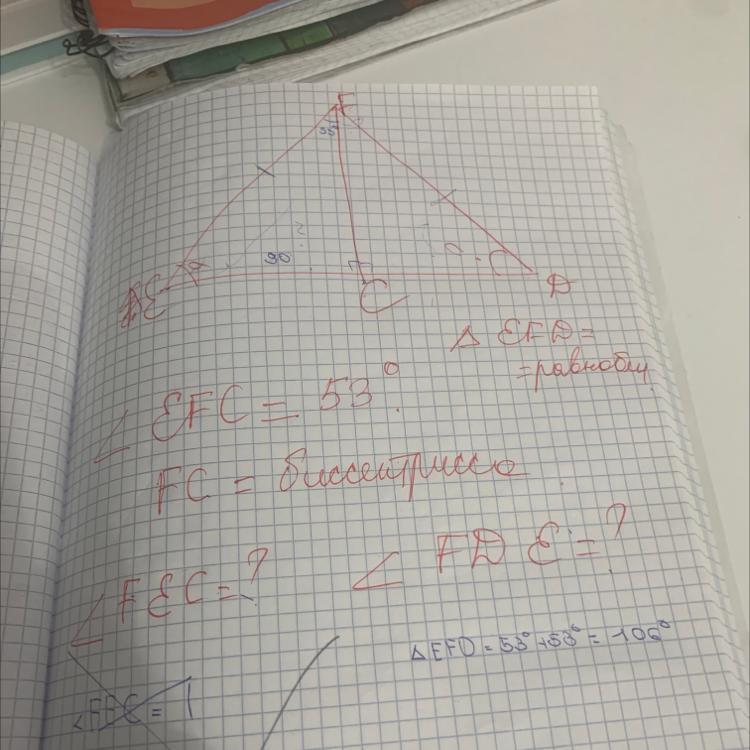 F
53°
90
E
C
D
Δ EFD =
= равнобед.
∠ EFC = 53°
FC = биссектрисса
∠ FEC = ?
∠ FDE = ?
Δ EFD = 53° + 53° = 106°